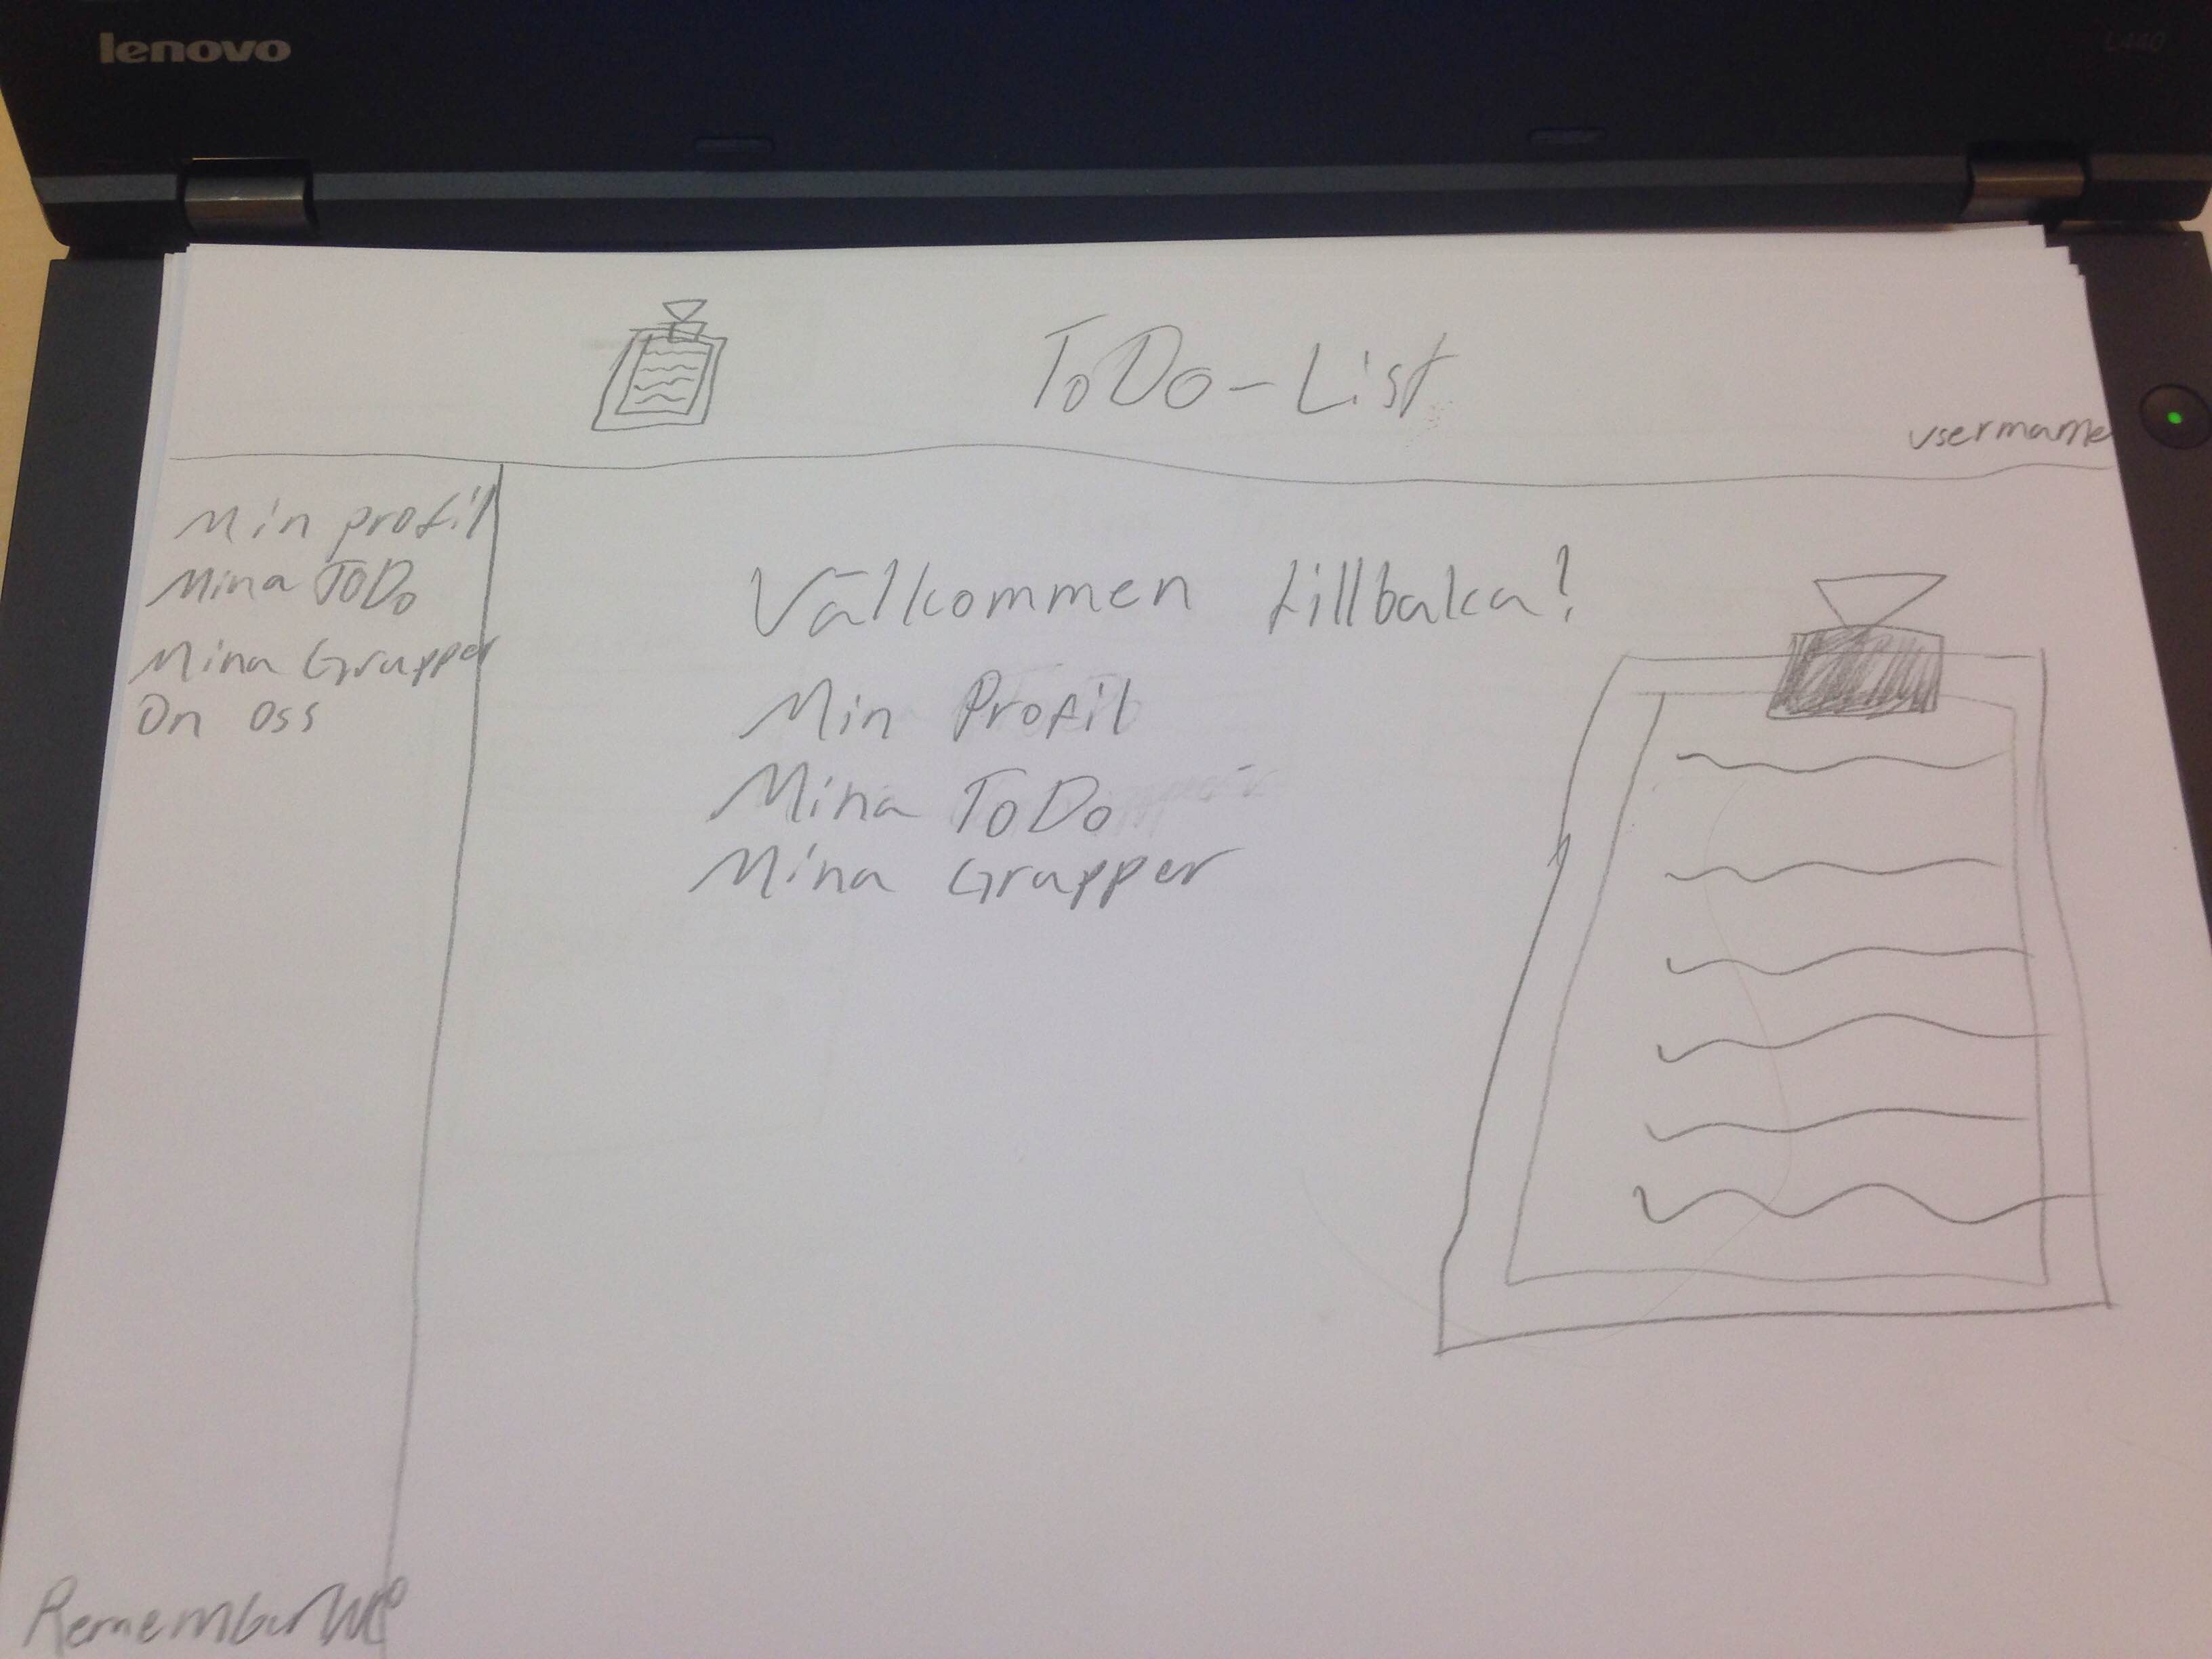 lenovo
L440
ToDo-List
username
Min profil
Mina ToDo
Mina Grupper
On oss
Välkommen tillbaka!
Min Profil
Mina ToDo
Mina Grupper